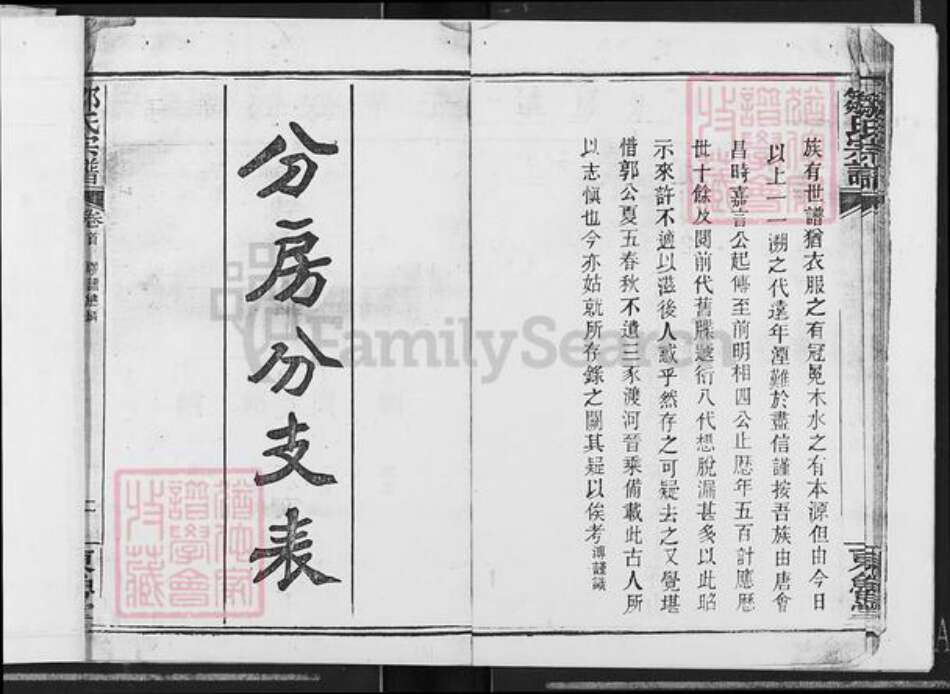 鄒氏宗譜
族有世譜猶衣服之有冠冕木水之有本源但由今日
以上一一溯之代遠年湮難於盡信謹按吾族由唐會
昌時嘉言公起傳至前明相四公止歷年五百計應歷
世十餘及閱前代舊牒遞衍八代想脫漏甚多以此昭
示來許不適以滋後人惑乎然存之可疑去之又覺堪
惜郭公夏五春秋不遺三豕渡河晉乘備載此古人所
以志慎也今亦姑就所存錄之闕其疑以俟考 溥謹識
東魯堂
分房分支表
鄒氏宗譜
卷首
東魯堂
譜學會
收藏
譜學會
收藏
FamilySearch